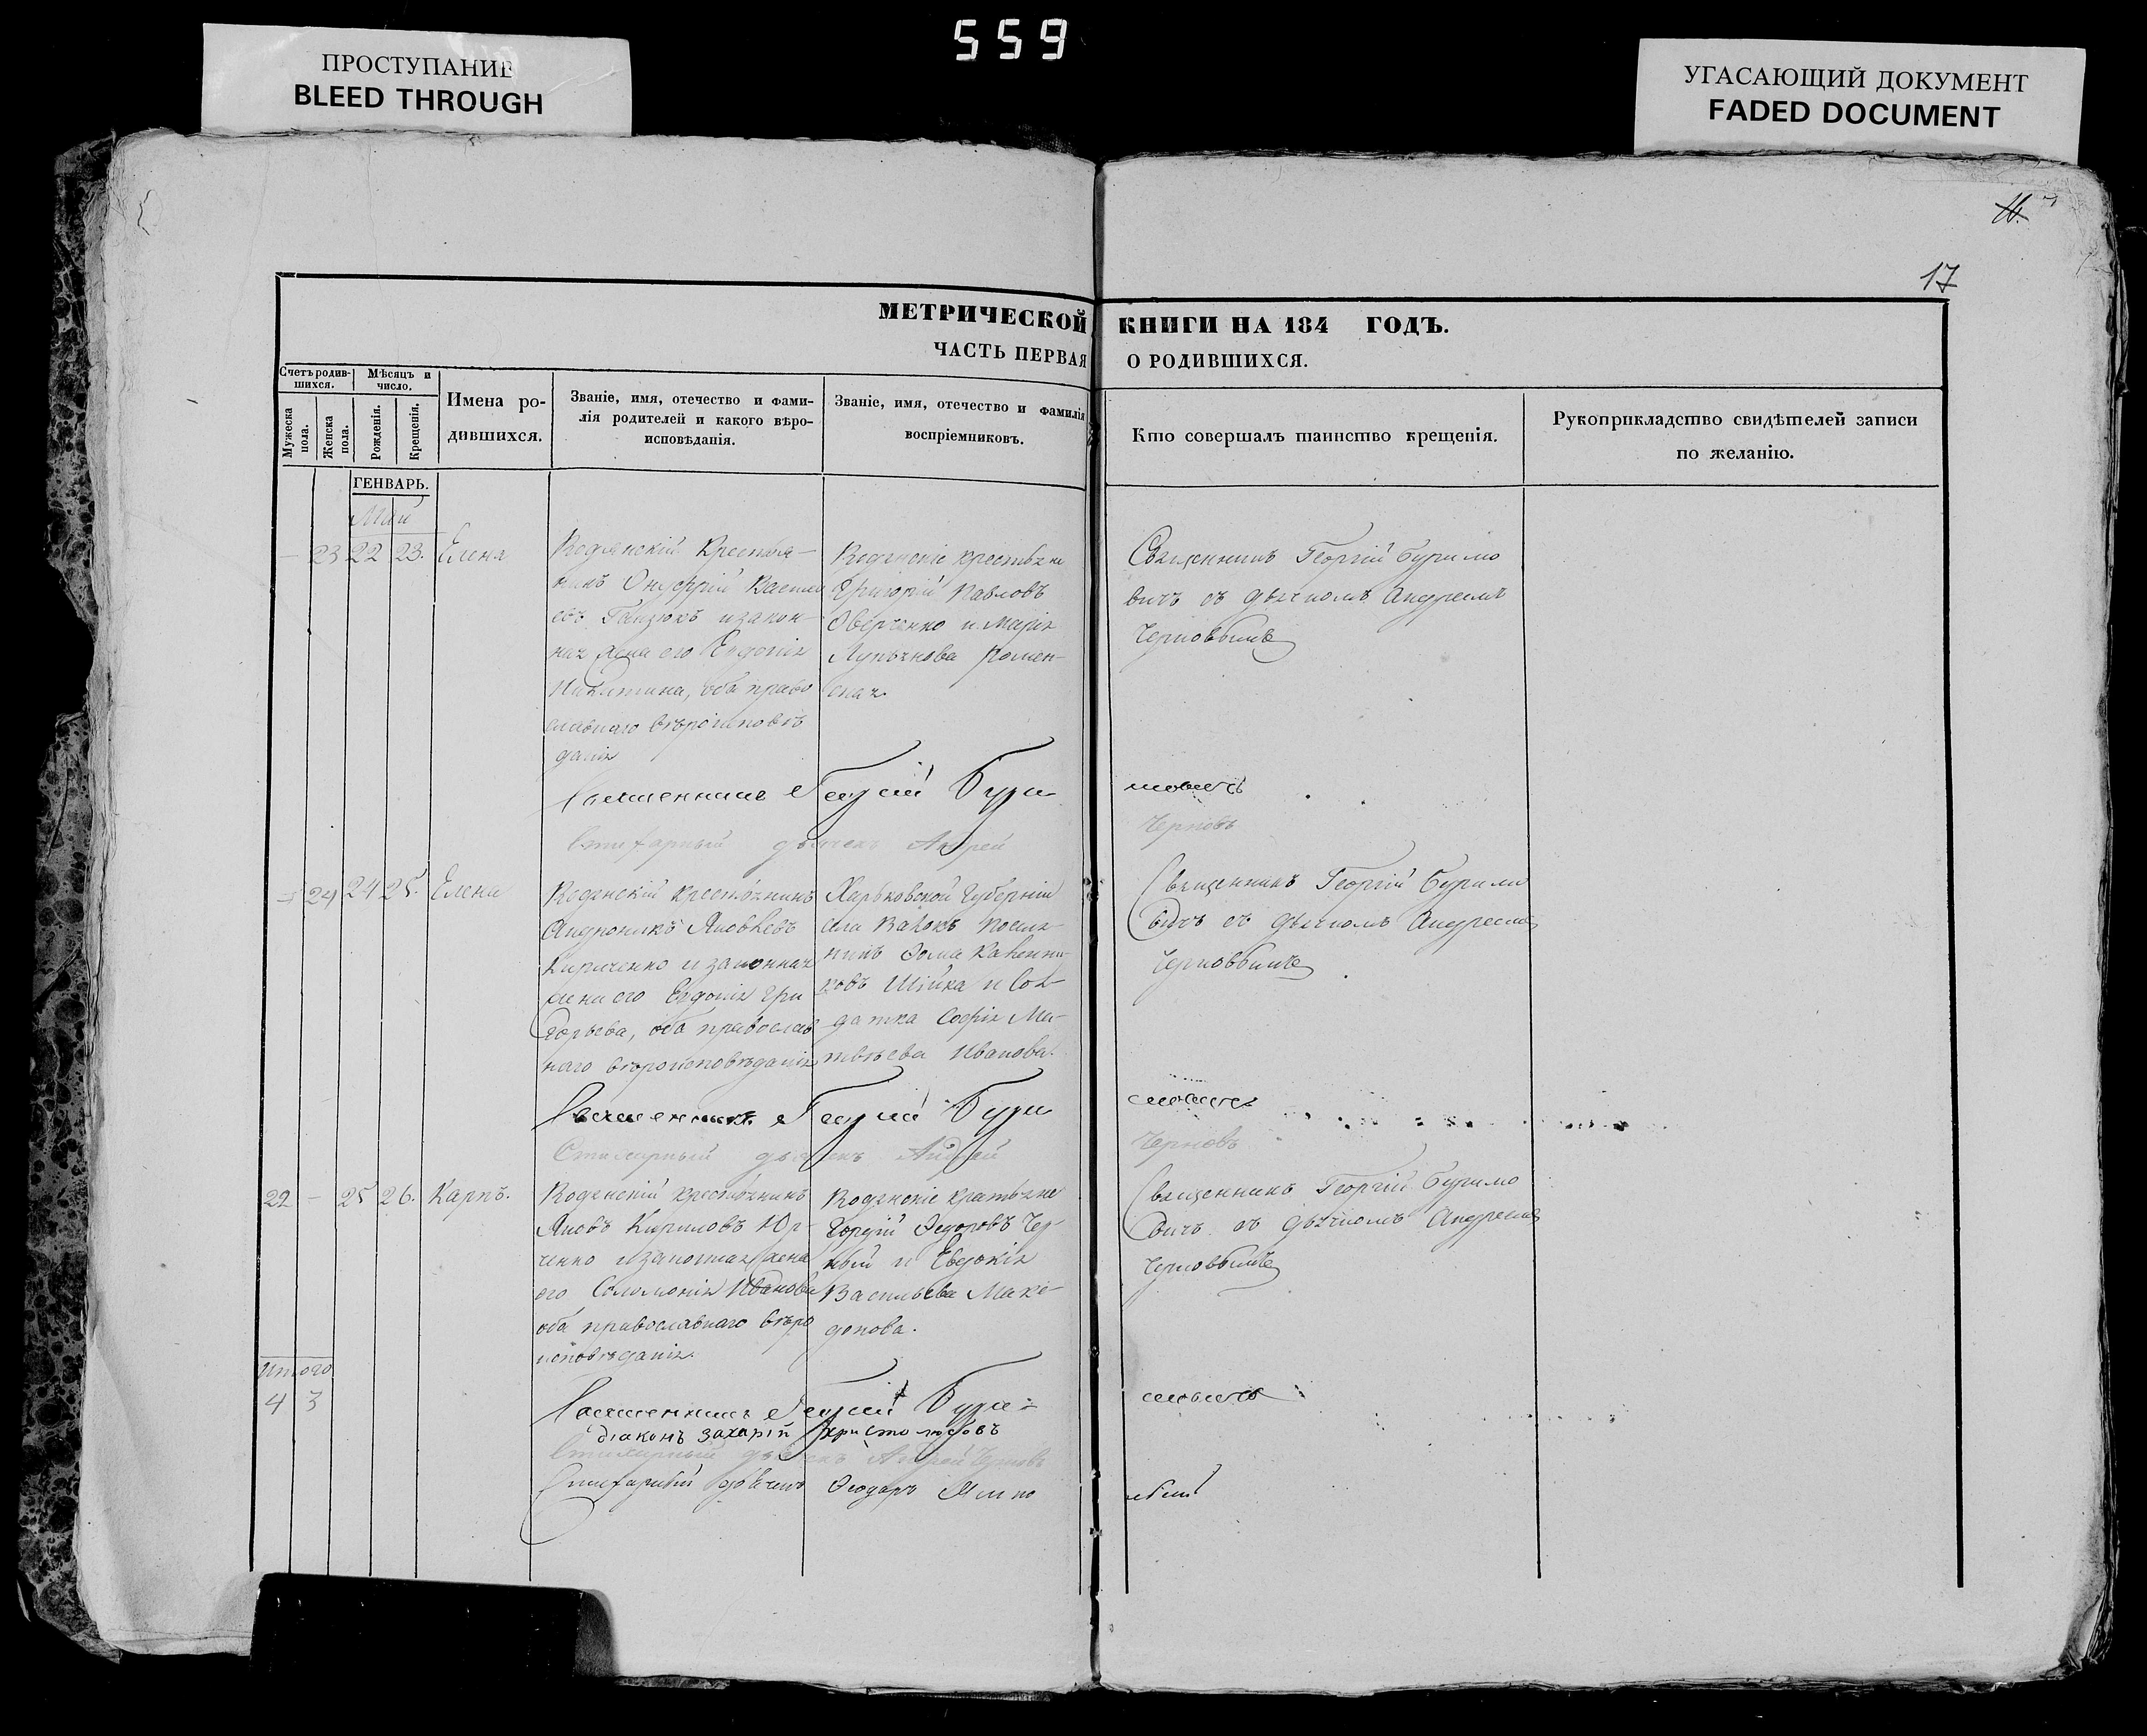 559
ПРОСТУПАНИЕ
BLEED THROUGH
УГАСАЮЩИЙ ДОКУМЕНТ
FADED DOCUMENT
16.
17
МЕТРИЧЕСКОЙ КНИГИ НА 184 ГОДЪ.
ЧАСТЬ ПЕРВАЯ О РОДИВШИХСЯ.
Счетъ родив-
шихся.
Мѣсяцъ и
число.
Мужеска
пола.
Женска
пола.
Рожденія.
Крещенія.
Имена ро-
дившихся.
Званіе, имя, отечество и фами-
лія родителей и какого вѣро-
исповѣданія.
Званіе, имя, отечество и фамилія
воспріемниковъ.
Кто совершалъ таинство крещенія.
Рукоприкладство свидѣтелей записи
по желанію.
ГЕНВАРЬ.
Май
— 23 22 23. Елена
Водянскій крестья-
нинъ Онуфрій Василь
евъ и закон-
ная жена его Евдокія
Никитина, оба право
славнаго вѣроисповѣ
данія
Водянскіе крестьяне
Григорій Павловъ
и Марія
Лукьянова Ромен-
ская.
Священникъ Георгій Буримо
вичъ съ дьячкомъ Андреемъ
Черновымъ
Священникъ Георгій Буримовичъ
Стихарный дьячекъ Андрей Черновъ
24 24 25. Елена
Водянскій крестьянинъ
Андроникъ Яковлевъ
Кириченко и законная
жена его Евдокія Гри
горьева, оба православ
наго вѣроисповѣданія
Харьковской губерніи
села Валокъ
Фома
ковъ Шійка и Сол-
датка Софія Ма-
твѣева Иванова.
Священникъ Георгій Бурими
вичъ съ дьячкомъ Андреемъ
Черновымъ
Священникъ Георгій Буримовичъ
Стихарный дьячекъ Андрей Черновъ
22 — 25 26. Карпъ.
Водянскій крестьянинъ
Яковъ Кириловъ Юр-
ченко и законная жена
его Соломонія Иванова
оба православнаго вѣро
исповѣданія.
Водянскіе крестьяне
Гордій Федоровъ Чер-
ный и Евдокія
Васильева Маке-
донова.
Священникъ Георгій Буримо
вичъ съ дьячкомъ Андреемъ
Черновымъ
Итого
4 3
Священникъ Георгій Буримовичъ
діаконъ Захарій Христолюбовъ
Стихарный дьячекъ Андрей Черновъ
Стихарный дьячекъ Феодоръ